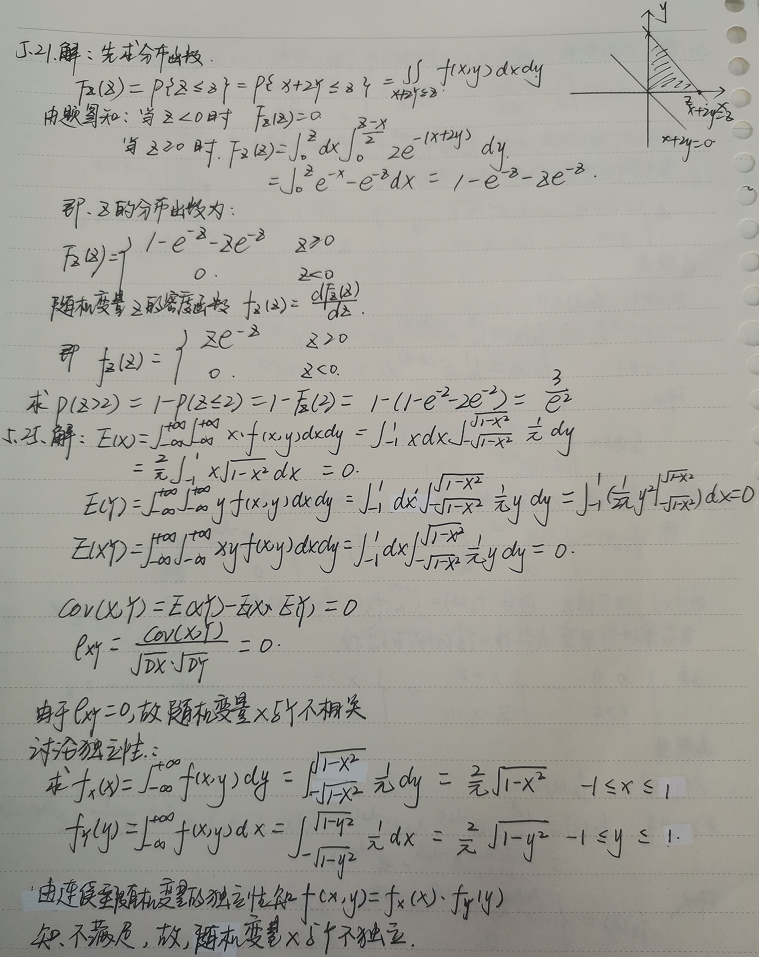 5.21.解：先求分布函数.
F_Z(z) = P{Z ≤ z} = P{x+2y ≤ z} = ∬_{x+2y≤z} f(x,y) dxdy
由题图知：当 z<0时 F_Z(z)=0
当 z≥0 时. F_Z(z) = ∫_0^z dx ∫_0^{(z-x)/2} 2e^{-(x+2y)} dy.
= ∫_0^z e^{-x} - e^{-z} dx = 1 - e^{-z} - ze^{-z}.
y
x
z
x+2y=z
x+2y=0
即. Z的分布函数为：
F_Z(z) = { 1-e^{-z}-ze^{-z} z≥0
0. z<0
随机变量Z的密度函数 f_Z(z) = dF_Z(z)/dz.
即 f_Z(z) = { ze^{-z} z≥0
0. z<0.
求 P(Z>2) = 1-P(Z≤2) = 1-F_Z(2) = 1-(1-e^{-2}-2e^{-2}) = 3/e^2
5.25.解：E(X) = ∫_{-∞}^{+∞}∫_{-∞}^{+∞} x·f(x,y)dxdy = ∫_{-1}^{1} xdx ∫_{-√(1-x^2)}^{√(1-x^2)} 1/π dy
= 2/π ∫_{-1}^{1} x√(1-x^2) dx = 0.
E(Y) = ∫_{-∞}^{+∞}∫_{-∞}^{+∞} y f(x,y) dxdy = ∫_{-1}^{1} dx ∫_{-√(1-x^2)}^{√(1-x^2)} 1/π y dy = ∫_{-1}^{1} (1/2π y^2 |_{-√(1-x^2)}^{√(1-x^2)}) dx=0
E(XY) = ∫_{-∞}^{+∞}∫_{-∞}^{+∞} xy f(x,y) dxdy = ∫_{-1}^{1} dx ∫_{-√(1-x^2)}^{√(1-x^2)} 1/π y dy = 0.
cov(X,Y) = E(XY) - E(X)·E(Y) = 0
ρxy = cov(X,Y)/(√DX·√DY) = 0.
由于ρxy=0,故随机变量X与Y不相关
讨论独立性：
求 f_x(x) = ∫_{-∞}^{+∞} f(x,y) dy = ∫_{-√(1-x^2)}^{√(1-x^2)} 1/π dy = 2/π √(1-x^2) -1 ≤ x ≤ 1
f_Y(y) = ∫_{-∞}^{+∞} f(x,y) dx = ∫_{-√(1-y^2)}^{√(1-y^2)} 1/π dx = 2/π √(1-y^2) -1 ≤ y ≤ 1.
由连续型随机变量的独立性知 f(x,y) = f_x(x)·f_Y(y)
知.不满足，故，随机变量X与Y不独立.